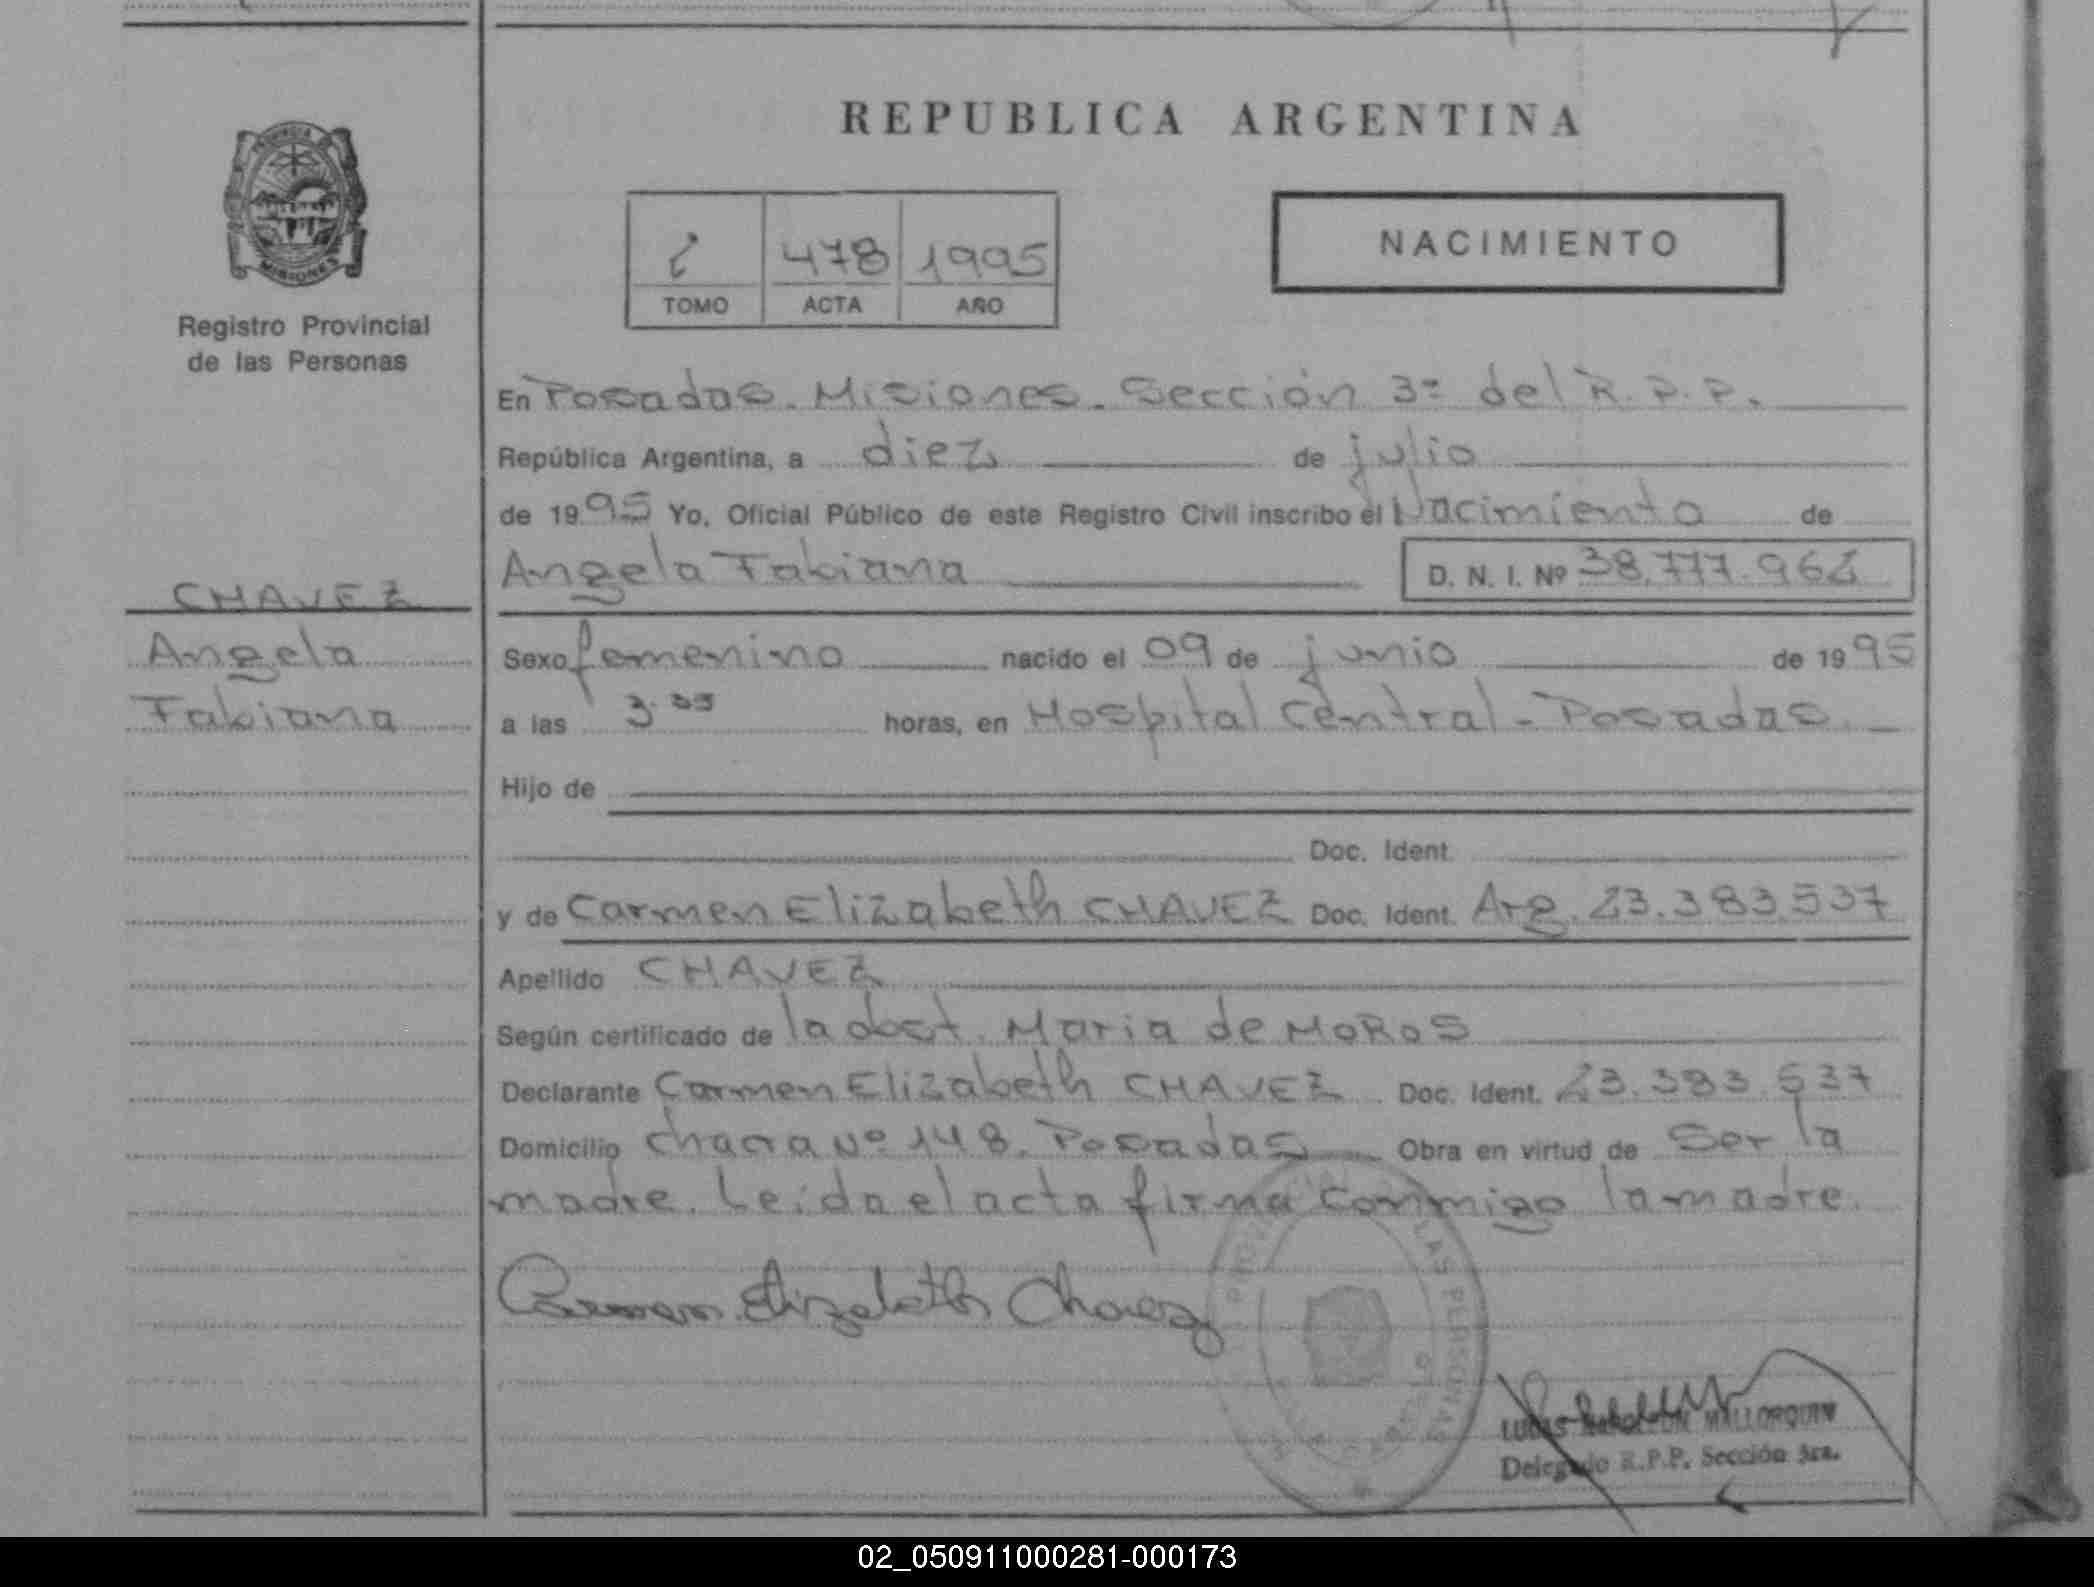 REPUBLICA ARGENTINA
PROVINCIA
MISIONES
Registro Provincial
de las Personas
478 1995
TOMO ACTA AÑO
NACIMIENTO
En Posadas. Misiones. Sección 3ª del R.P.P.
República Argentina, a diez de julio
de 1995 Yo, Oficial Público de este Registro Civil inscribo el Nacimiento de
Angela Fabiana D. N. I. Nº 38.777.962
CHAVEZ
Angela
Fabiana
Sexo femenino nacido el 09 de junio de 1995
a las horas, en Hospital Central - Posadas.
Hijo de
Doc. Ident.
y de Carmen Elizabeth CHAVEZ Doc. Ident. Arg. 23.383.537
Apellido CHAVEZ
Según certificado de la obst. Maria de MOROS
Declarante Carmen Elizabeth CHAVEZ Doc. Ident. 23.383.537
Domicilio chacra Nº 148. Posadas Obra en virtud de Ser la
madre. Leida el acta firma conmigo la madre.
Carmen Elizabeth Chavez
LAS PERSONAS
LUCAS NAPOLEON MALLORQUIN
Delegado R.P.P. Sección 3ra.
02_050911000281-000173